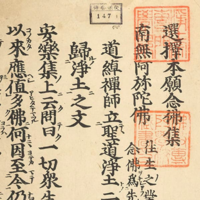 選擇本願念佛集
南無阿弥陀佛
往生之業
念佛為先
道綽禅師立聖道浄土二
歸浄土之文
安樂集上云問曰一切衆生
以來應值多佛何因至今仍
147